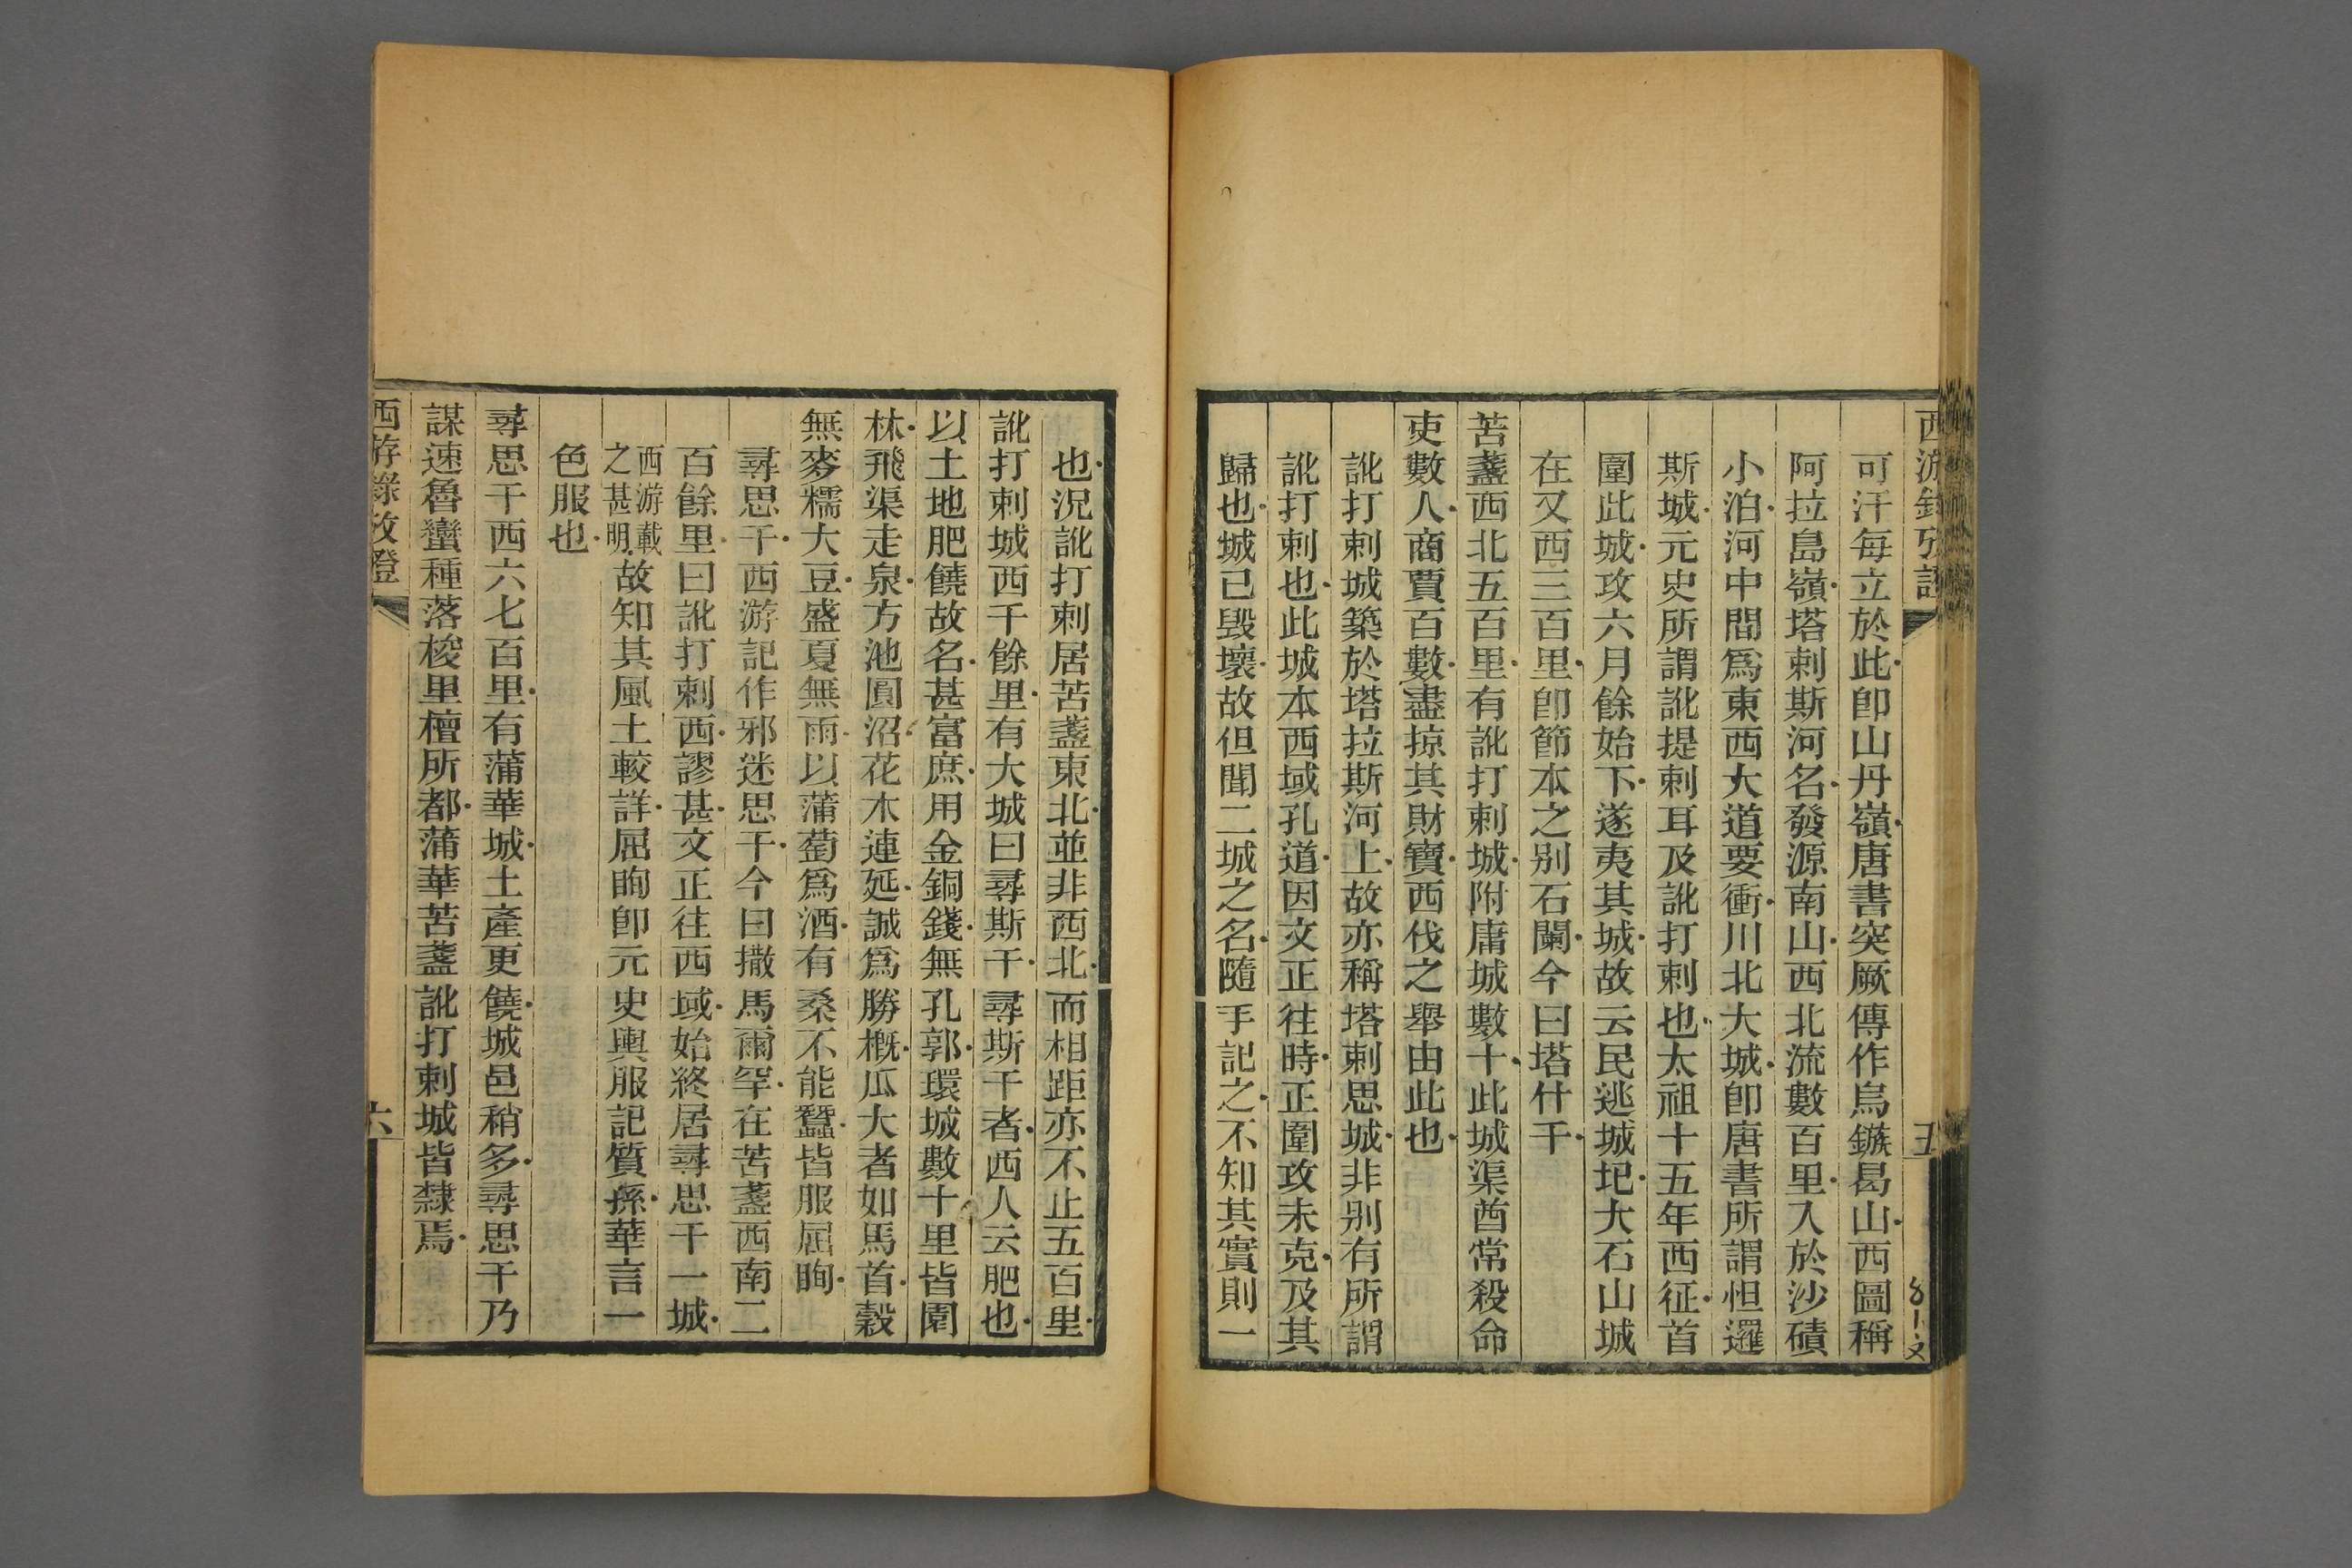 可汗每立於此卽山丹嶺唐書突厥傳作烏鏃曷山西圖稱
阿拉島嶺塔剌斯河名發源南山西北流數百里入於沙磧
小泊河中間爲東西大道要衝川北大城卽唐書所謂怛邏
斯城元史所謂訛提剌耳及訛打剌也太祖十五年西征首
圍此城攻六月餘始下遂夷其城故云民逃城圯大石山城
在又西三百里卽節本之别石蘭今曰塔什干
苦盞西北五百里有訛打剌城附庸城數十此城渠酋常殺命
吏數人商賈百數盡掠其財寶西伐之舉由此也
訛打剌城築於塔拉斯河上故亦稱塔剌思城非别有所謂
訛打剌也此城本西域孔道因文正往時正圍攻未克及其
歸也城已毀壞故但聞二城之名隨手記之不知其實則一
也況訛打剌居苦盞東北並非西北而相距亦不止五百里
訛打剌城西千餘里有大城曰尋斯干尋斯干者西人云肥也
以土地肥饒故名甚富庶用金銅錢無孔郭環城數十里皆園
林飛渠走泉方池圓沼花木連延誠爲勝槪瓜大者如馬首穀
無麥糯大豆盛夏無雨以蒲萄爲酒有桑不能蠶皆服屈眴
尋思干西游記作邪迷思干今曰撒馬爾罕在苦盞西南二
百餘里曰訛打剌西謬甚文正往西域始終居尋思干一城
西游載之甚明故知其風土較詳屈眴卽元史輿服記質孫華言一
色服也
尋思干西六七百里有蒲華城土產更饒城邑稍多尋思干乃
謀速魯蠻種落梭里檀所都蒲華苦盞訛打剌城皆隸焉
西游錄攷證
六